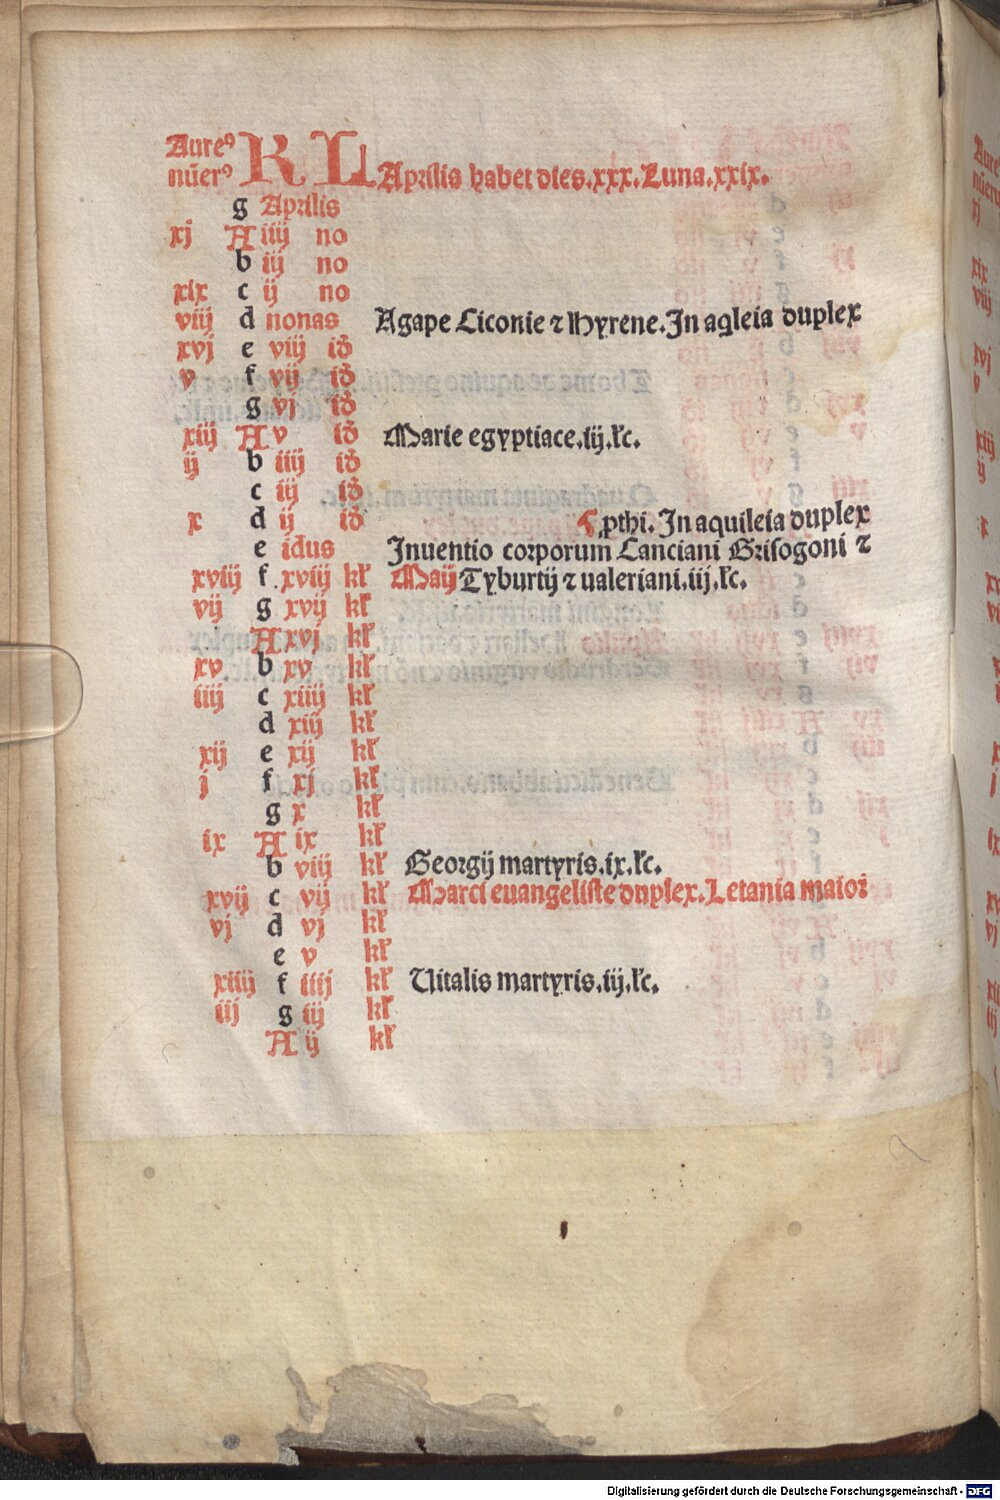 Aureꝰ KL
nūerꝰ Aprilis habet dies.xxx.Luna.xxix.
g Aprilis
xj A iiij no
b iij no
xix c ij no
viij d nonas Agape Liconie ⁊ Hyrene.In aqleia duplex
xvj e viij id
v f vij id
g vj id
xiij A v id Marie egyptiace.iij.lc.
ij b iiij id
c iij id
x d ij id pthi. In aquileia duplex
e idus Inuentio corporum Canciani Grisogoni ⁊
xviij f xviij kl Maij Tyburtij ⁊ ualeriani.iij.lc.
vij g xvij kl
A xvj kl
xv b xv kl
iiij c xiiij kl
d xiij kl
xij e xij kl
j f xj kl
g x kl
ix A ix kl
b viij kl Georgij martyris.ix.lc.
xvij c vij kl Marci euangeliste duplex.Letania maior
vj d vj kl
e v kl
xiiij f iiij kl Uitalis martyris.iij.lc.
iij g iij kl
A ij kl
Digitalisierung gefördert durch die Deutsche Forschungsgemeinschaft - DFG